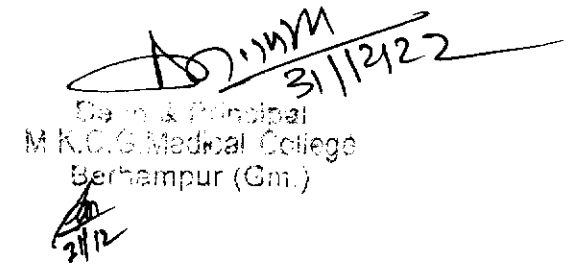 31/12/22
Dean & Principal
M.K.C.G.Medical College
Berhampur (Gm.)
31/12